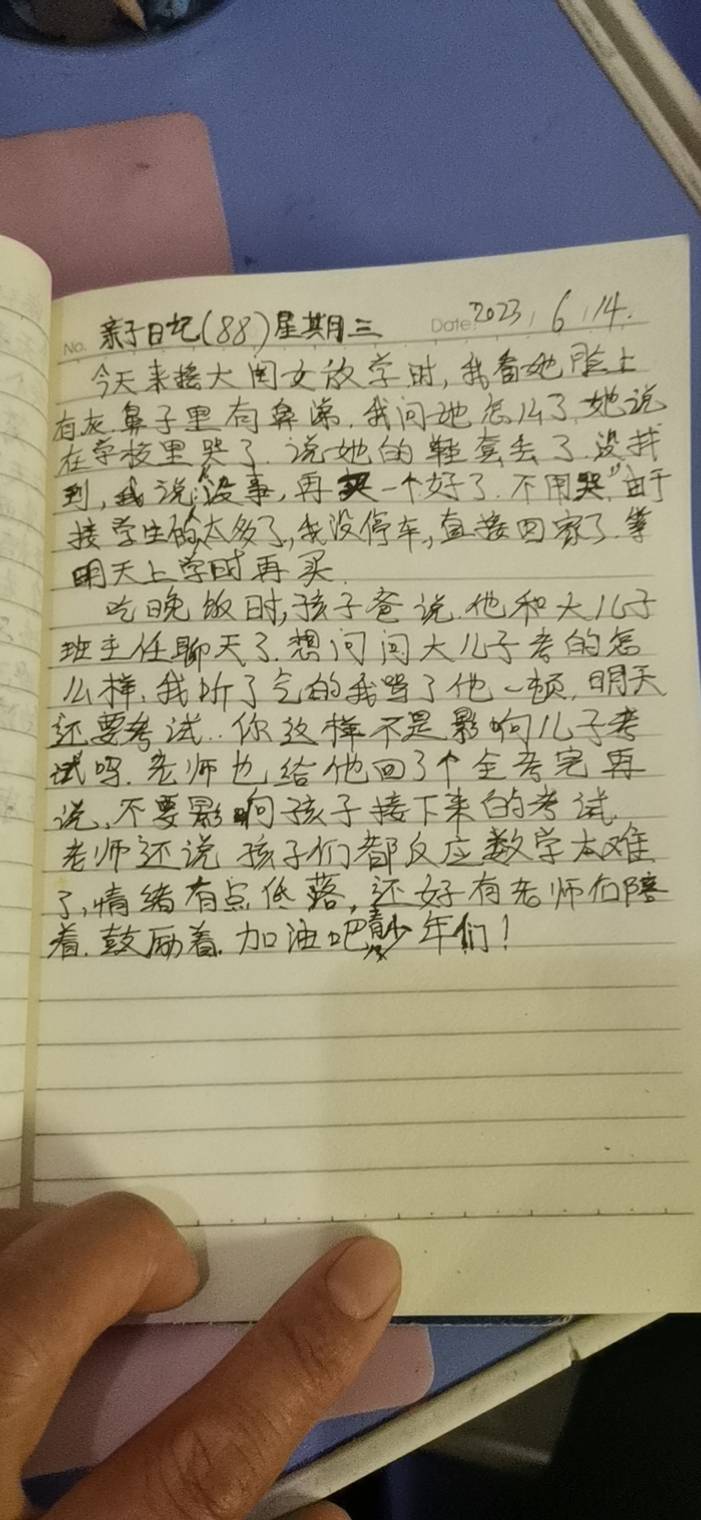 No. 亲子日记(88)星期三 Date: 2023 / 6 / 14.
今天来接大闺女放学时,我看她脸上
有灰鼻子里有鼻涕.我问她怎么了她说
在学校里哭了.说她的鞋套丢了.没找
到,我说:“没事,再买一个好了.不用哭”由于
接学生的太多了,我没停车,直接回家了.等
明天上学时再买.
吃晚饭时,孩子爸说.他和大儿子
班主任聊天了.想问问大儿子考的怎
么样,我听了气的我当了他一顿,明天
还要考试..你这样不是影响儿子考
试吗.老师也给他回了个全考完再
说,不要影响孩子接下来的考试.
老师还说孩子们都反应数学太难
了,情绪有点低落,还好有老师们陪
着.鼓励着.加油吧青少年们!